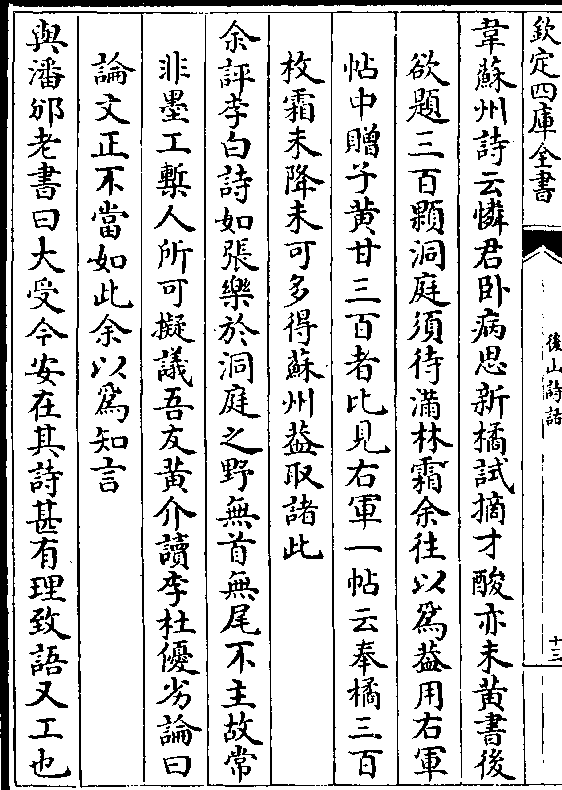 欽定四庫全書
後山詩話
十三
韋蘇州詩云憐君卧病思新橘試摘才酸亦未黄書後
欲題三百顆洞庭須待滿林霜余往以爲葢用右軍
帖中贈子黄甘三百者比見右軍一帖云奉橘三百
枚霜未降未可多得蘇州葢取諸此
余評李白詩如張樂於洞庭之野無首無尾不主故常
非墨工槧人所可擬議吾友黄介讀李杜優劣論曰
論文正不當如此余以爲知言
與潘邠老書曰大受今安在其詩甚有理致語又工也